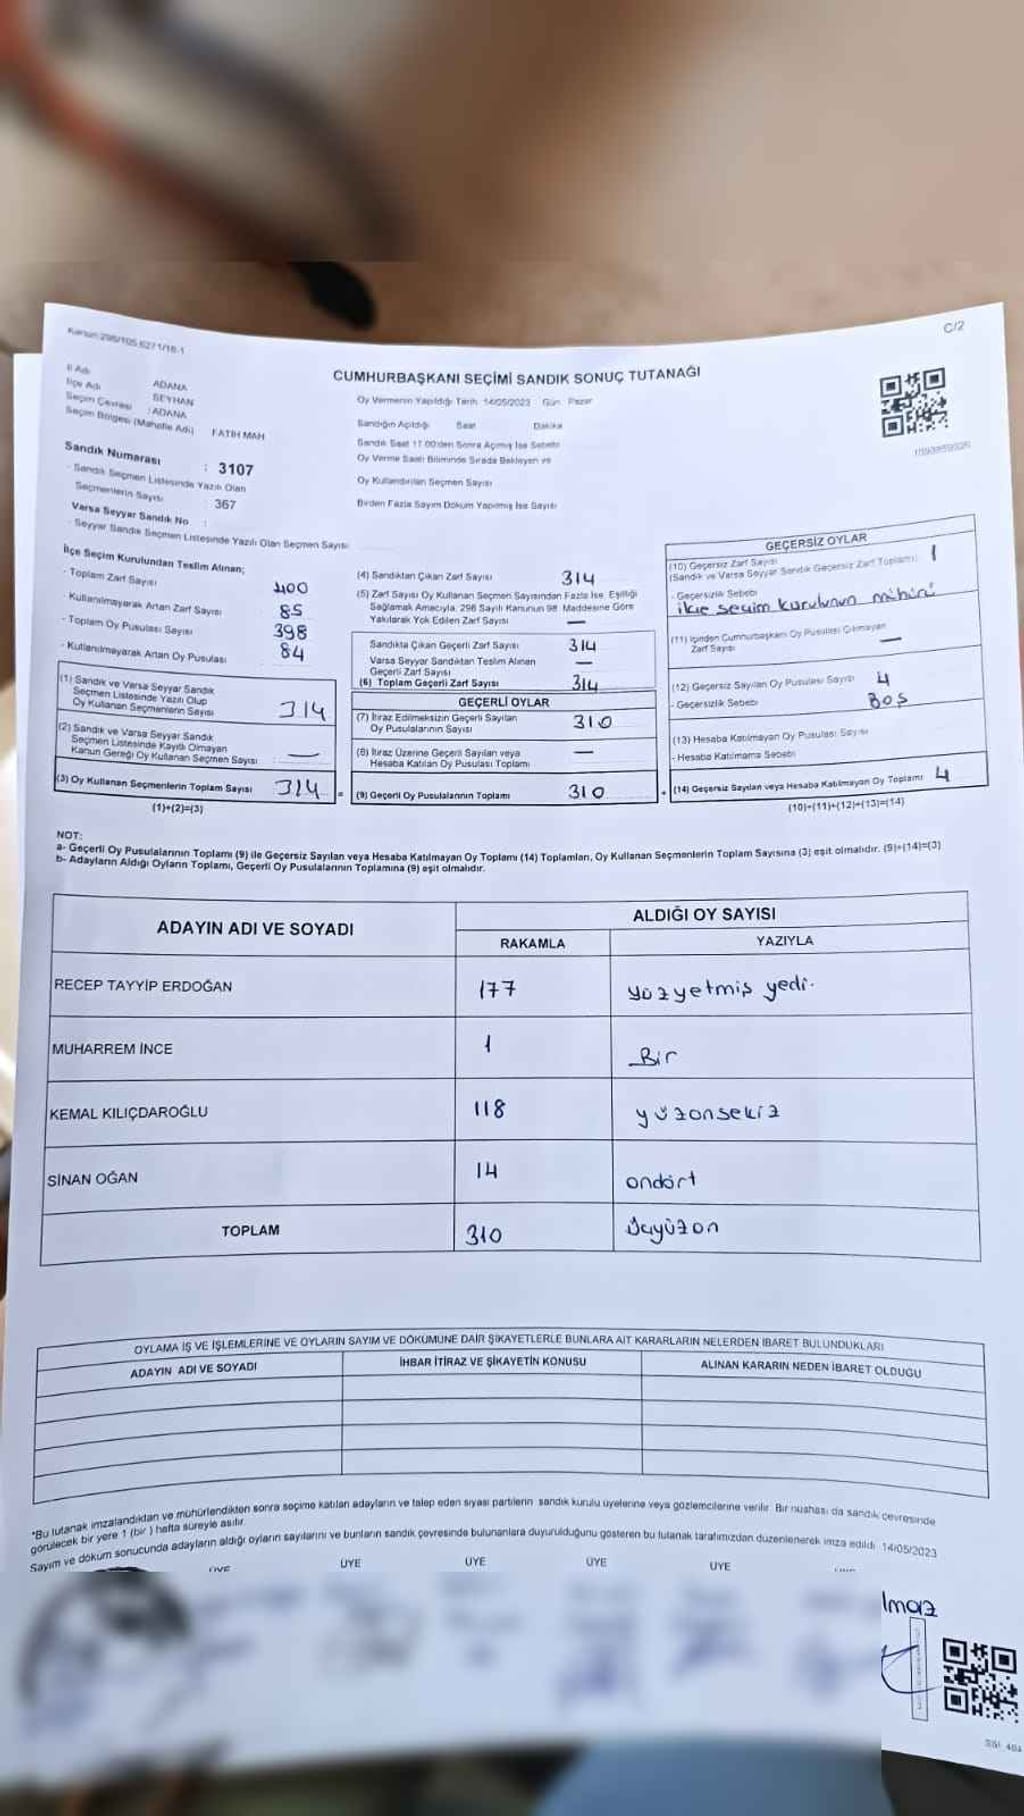 Kanun:298/105,6271/18-1
C/2
CUMHURBAŞKANI SEÇİMİ SANDIK SONUÇ TUTANAĞI
İl Adı
İlçe Adı ADANA
Seçim Çevresi SEYHAN
Seçim Bölgesi (Mahalle Adı) : ADANA
FATİH MAH
Sandık Numarası : 3107
- Sandık Seçmen Listesinde Yazılı Olan
Seçmenlerin Sayısı : 367
Varsa Seyyar Sandık No :
- Seyyar Sandık Seçmen Listesinde Yazılı Olan Seçmen Sayısı
Oy Vermenin Yapıldığı Tarih 14/05/2023 Gün Pazar
Sandığın Açıldığı Saat Dakika
Sandık Saat 17.00'den Sonra Açılmış İse Sebebi
Oy Verme Saati Bitiminde Sırada Bekleyen ve
Oy Kullandırılan Seçmen Sayısı
Birden Fazla Sayım Döküm Yapılmış İse Sayısı
İlçe Seçim Kurulundan Teslim Alınan;
- Toplam Zarf Sayısı 400
- Kullanılmayarak Artan Zarf Sayısı 85
- Toplam Oy Pusulası Sayısı 398
- Kullanılmayarak Artan Oy Pusulası 84
(1) Sandık ve Varsa Seyyar Sandık
Seçmen Listesinde Yazılı Olup
Oy Kullanan Seçmenlerin Sayısı 314
(2) Sandık ve Varsa Seyyar Sandık
Seçmen Listesinde Kayıtlı Olmayan
Kanun Gereği Oy Kullanan Seçmen Sayısı : —
(3) Oy Kullanan Seçmenlerin Toplam Sayısı 314 =
(1)+(2)=(3)
(4) Sandıktan Çıkan Zarf Sayısı 314
(5) Zarf Sayısı Oy Kullanan Seçmen Sayısından Fazla İse, Eşitliği
Sağlamak Amacıyla, 298 Sayılı Kanunun 98. Maddesine Göre
Yakılarak Yok Edilen Zarf Sayısı —
Sandıkta Çıkan Geçerli Zarf Sayısı 314
Varsa Seyyar Sandıktan Teslim Alınan
Geçerli Zarf Sayısı —
(6) Toplam Geçerli Zarf Sayısı 314
GEÇERLİ OYLAR
(7) İtiraz Edilmeksizin Geçerli Sayılan
Oy Pusulalarının Sayısı 310
(8) İtiraz Üzerine Geçerli Sayılan veya
Hesaba Katılan Oy Pusulası Toplamı —
(9) Geçerli Oy Pusulalarının Toplamı 310 +
GEÇERSİZ OYLAR
(10) Geçersiz Zarf Sayısı
(Sandık ve Varsa Seyyar Sandık Geçersiz Zarf Toplamı) 1
- Geçersizlik Sebebi
ilçe seçim kurulunun mührü
(11) İçinden Cumhurbaşkanı Oy Pusulası Çıkmayan
Zarf Sayısı —
(12) Geçersiz Sayılan Oy Pusulası Sayısı 4
- Geçersizlik Sebebi Boş
(13) Hesaba Katılmayan Oy Pusulası Sayısı
- Hesaba Katılmama Sebebi
(14) Geçersiz Sayılan veya Hesaba Katılmayan Oy Toplamı 4
(10)+(11)+(12)+(13)=(14)
NOT:
a- Geçerli Oy Pusulalarının Toplamı (9) ile Geçersiz Sayılan veya Hesaba Katılmayan Oy Toplamı (14) Toplamları, Oy Kullanan Seçmenlerin Toplam Sayısına (3) eşit olmalıdır. (9)+(14)=(3)
b- Adayların Aldığı Oyların Toplamı, Geçerli Oy Pusulalarının Toplamına (9) eşit olmalıdır.
ADAYIN ADI VE SOYADI ALDIĞI OY SAYISI
RAKAMLA YAZIYLA
RECEP TAYYİP ERDOĞAN 177 yüzyetmiş yedi.
MUHARREM İNCE 1 Bir
KEMAL KILIÇDAROĞLU 118 yüzonsekiz
SİNAN OĞAN 14 ondört
TOPLAM 310 üçyüzon
OYLAMA İŞ VE İŞLEMLERİNE VE OYLARIN SAYIM VE DÖKÜMÜNE DAİR ŞİKAYETLERLE BUNLARA AİT KARARLARIN NELERDEN İBARET BULUNDUKLARI
ADAYIN ADI VE SOYADI İHBAR İTİRAZ VE ŞİKAYETİN KONUSU ALINAN KARARIN NEDEN İBARET OLDUĞU
*Bu tutanak imzalandıktan ve mühürlendikten sonra seçime katılan adayların ve talep eden siyasi partilerin sandık kurulu üyelerine veya gözlemcilerine verilir. Bir nüshası da sandık çevresinde
görülecek bir yere 1 (bir ) hafta süreyle asılır.
Sayım ve döküm sonucunda adayların aldığı oyların sayılarını ve bunların sandık çevresinde bulunanlara duyurulduğunu gösteren bu tutanak tarafımızdan düzenlenerek imza edildi. 14/05/2023
ÜYE ÜYE ÜYE ÜYE ÜYE
lmaz